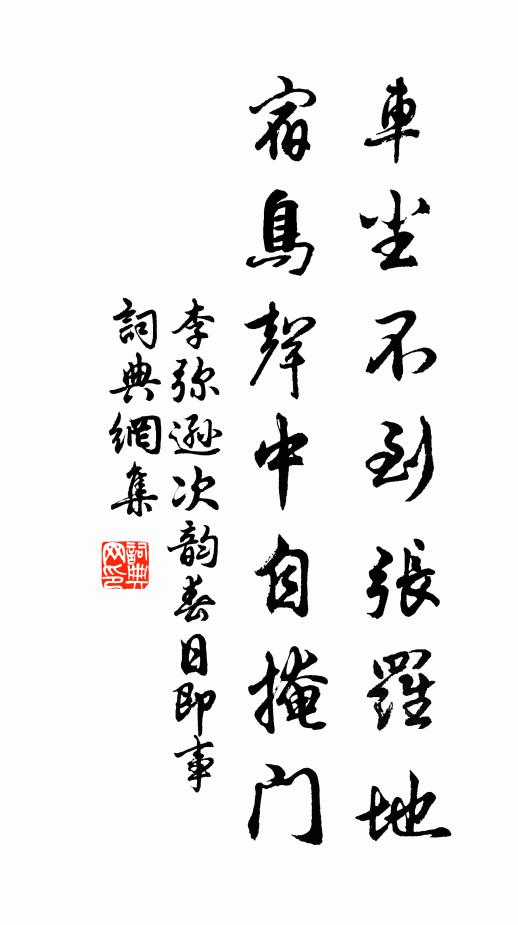 車尘不到張羅地
宿鳥聲中自掩门
李弥遜次韵春日即事
詞典網集
詞典网印